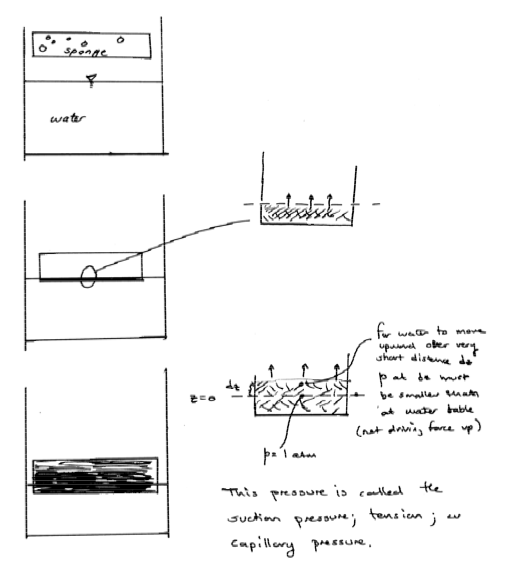 sponge
water
for water to move
upward over very
short distance dz
p at dz must
be smaller than
at water table
(net driving force up)
dz
z=0
p=1 atm
This pressure is called the
suction pressure; tension; or
Capillary pressure.